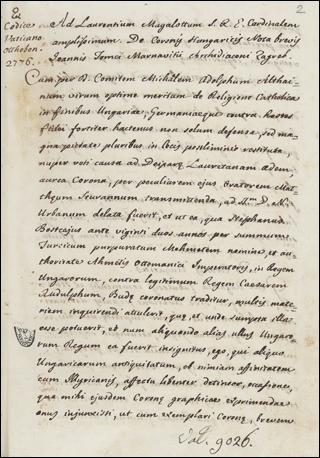 2
Ex
Codice
Vaticano
Otthobon.
2776.
Ad Laurentium Magalottum S. R. E. Cardinalem
amplissimum. De Coronis Hungaricis Nota brevis
Joannis Tomci Marnavitii Archidiaconi Zagrab.
Cum per D. Comitem Michælem Adolphum Althain-
nium virum optime meritum de Religione Catholica
in finibus Ungariæ, Germaniæque contra hostes
fidei fortiter hactenus non solum defensa, sed ma-
gna pietate pluribus in locis postliminio restituta,
nuper voti causa ad Deiparæ Lauretanam ædem
aurea Corona, per peculiarem ejus Oratorem Mat-
thæum transmittenda, ad SS.m D. N.
Urbanum delata fuerit, et ut ea, qua Stephanus
Bostcajus ante viginti duos annos per summum
Turcicum purpuratum Mehmetem nomine, et au-
thoritate Ahmetis Ottomanici Imperatoris, in Regem
Ungarorum, contra legitimum Regem Cæsarem
Rudulphum Budæ coronatus traditur, multis mate-
riem inquirendi attulerit, quæ, et unde sumpta illa
esse potuerit, et num aliquando alias ullus Ungaro-
rum Regum ea fuerit insignitus, ego, qui aliquo
Ungaricarum antiquitatum, ob nimiam affinitatem
cum Illyricanis, affectu libenter detineor, occasione,
qua mihi ejusdem Coronæ graphice exprimendæ
onus injunxisti, ut cum exemplari Coronæ, brevem
Vat. 9026.